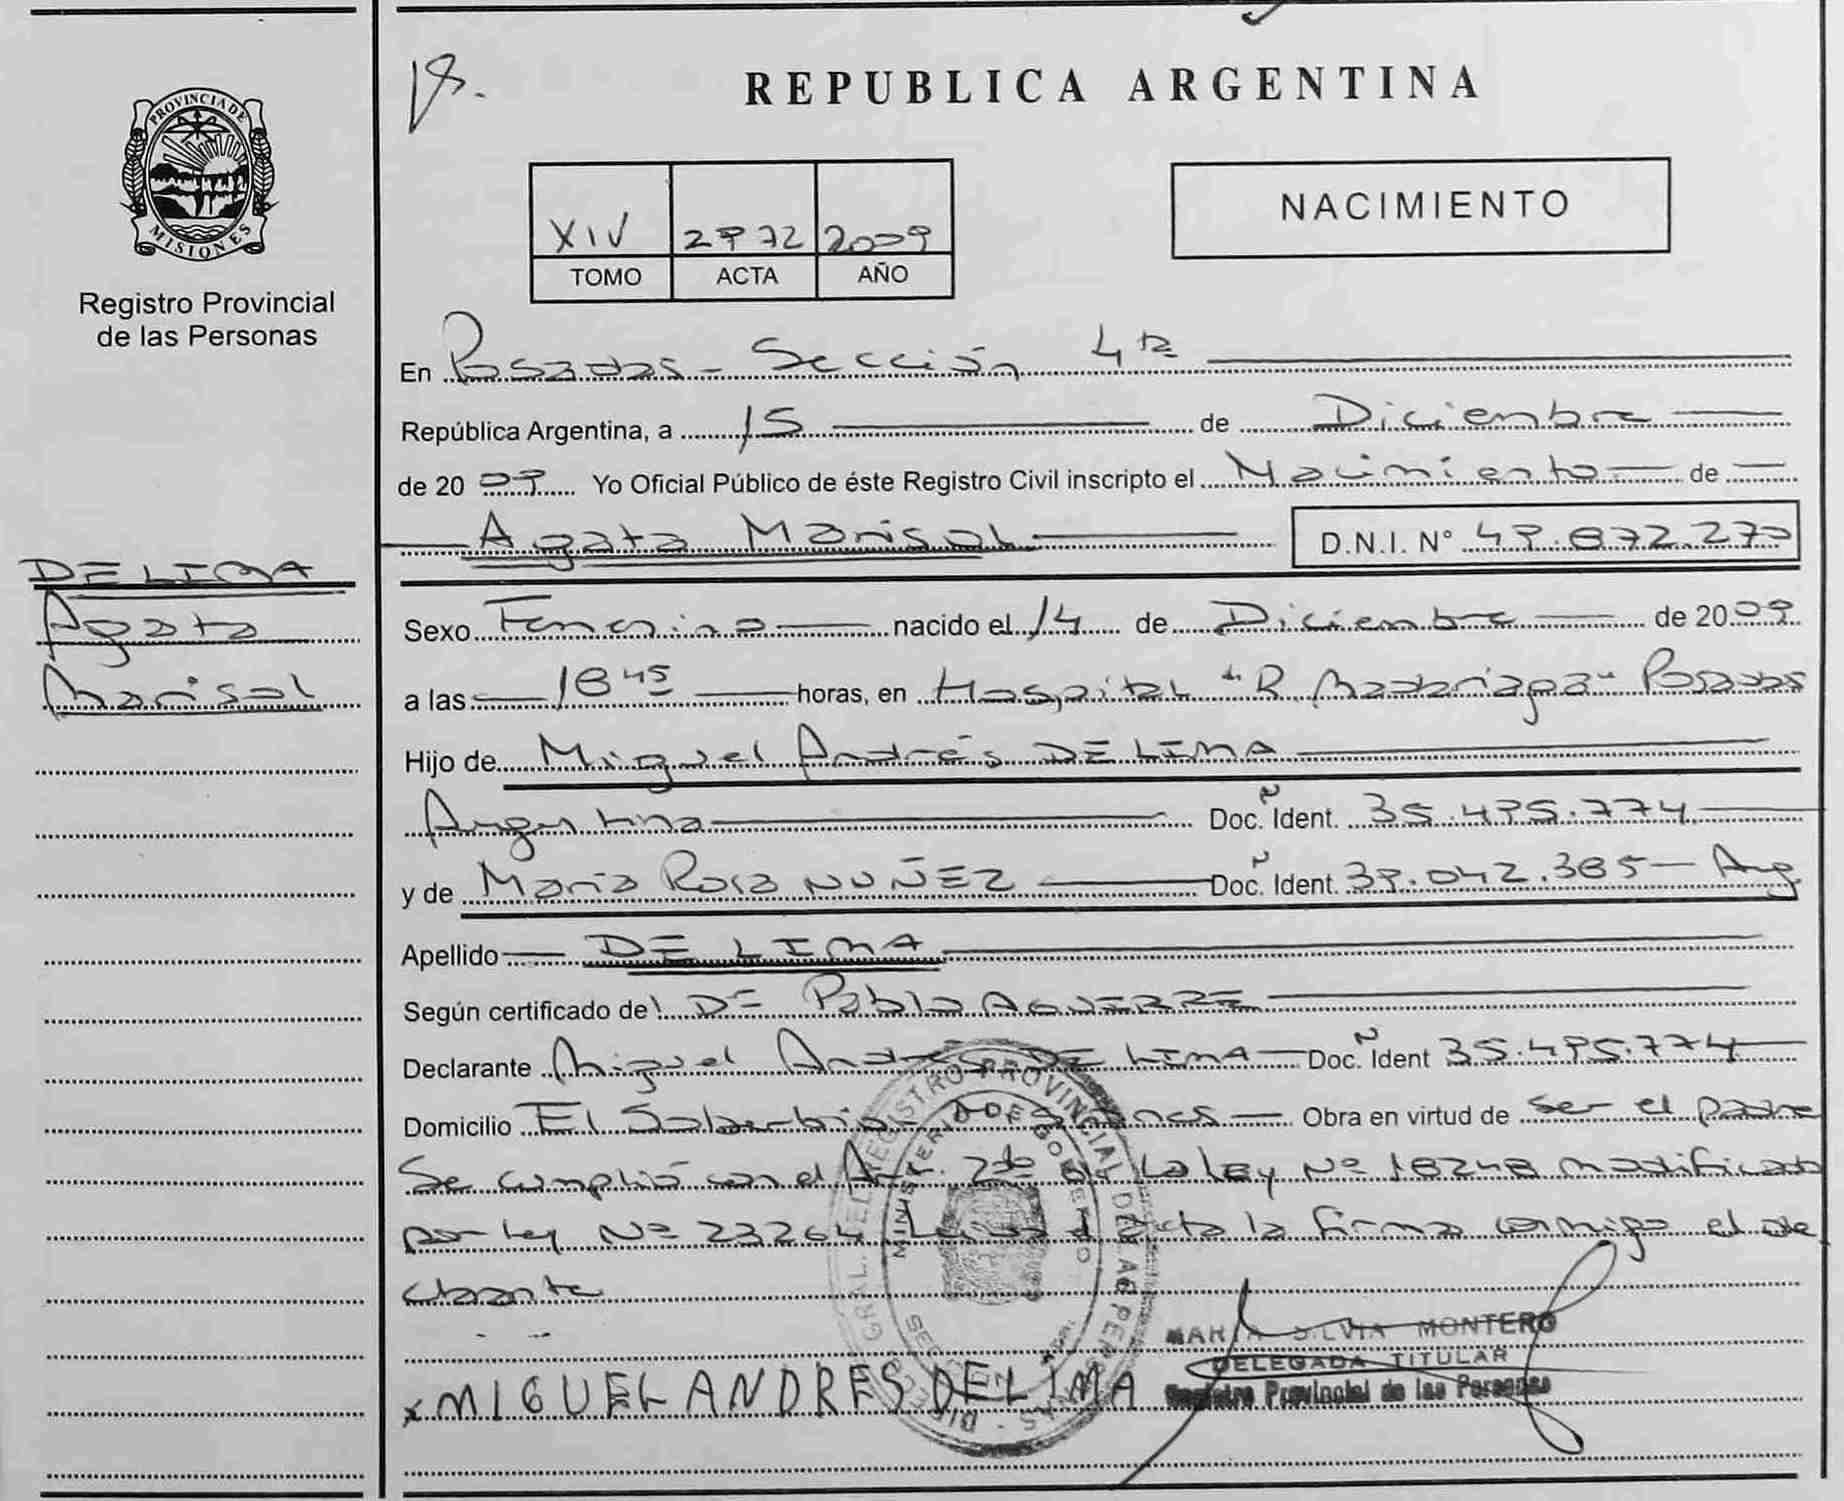 PROVINCIA DE
MISIONES
Registro Provincial
de las Personas
DE LIMA
Agata
Marisol
REPUBLICA ARGENTINA
XIV 2972 2009
TOMO ACTA AÑO
NACIMIENTO
En Posadas - Sección 4ta
República Argentina, a 15 de Diciembre
de 2009 Yo Oficial Público de éste Registro Civil inscripto el Nacimiento de
Agata Marisol D.N.I. N° 49.872.270
Sexo Femenino nacido el 14 de Diciembre de 2009
a las 18 45 horas, en Hospital "R. Madariaga" Posadas
Hijo de Miguel Andrés DE LIMA
Argentina Doc. Ident. 35.495.774
y de María Rosa NUÑEZ Doc. Ident. 39.042.385 - Arg.
Apellido DE LIMA
Según certificado de DE Pablo AGUERRE
Declarante Miguel Andrés DE LIMA Doc. Ident 35.495.774
Domicilio El Soberbio Obra en virtud de ser el padre
Se cumplió con el Art. 2do de la Ley Nº 18248 modificado
por ley Nº 23264 Leida el Acta la firma conmigo el de
clarante
MARIA SILVIA MONTERO
DELEGADA TITULAR
Registro Provincial de las Personas
x MIGUEL ANDRES DE LIMA
MINISTERIO DE GOBIERNO